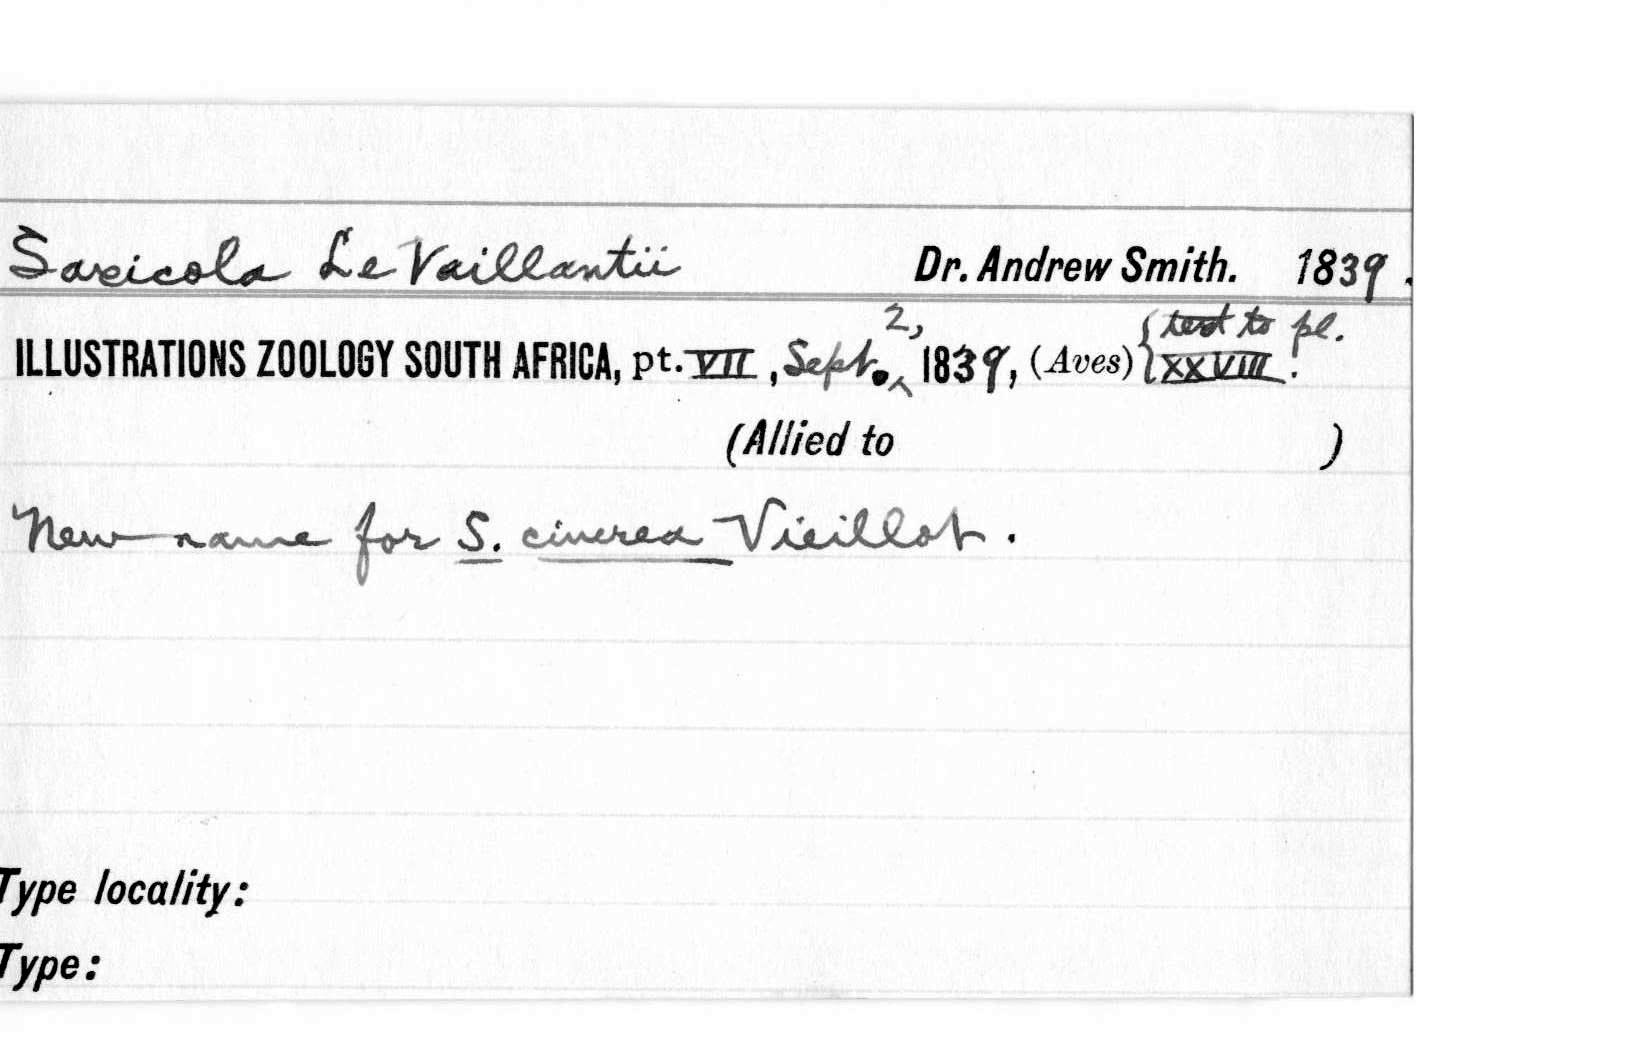 Saxicola Le Vaillantii Dr. Andrew Smith. 1839.
ILLUSTRATIONS ZOOLOGY SOUTH AFRICA, pt. VII, Sept. 2, 1839, (Aves) { text to pl. XXVIII.
(Allied to )
New name for S. cinerea Vieillot.
Type locality:
Type: